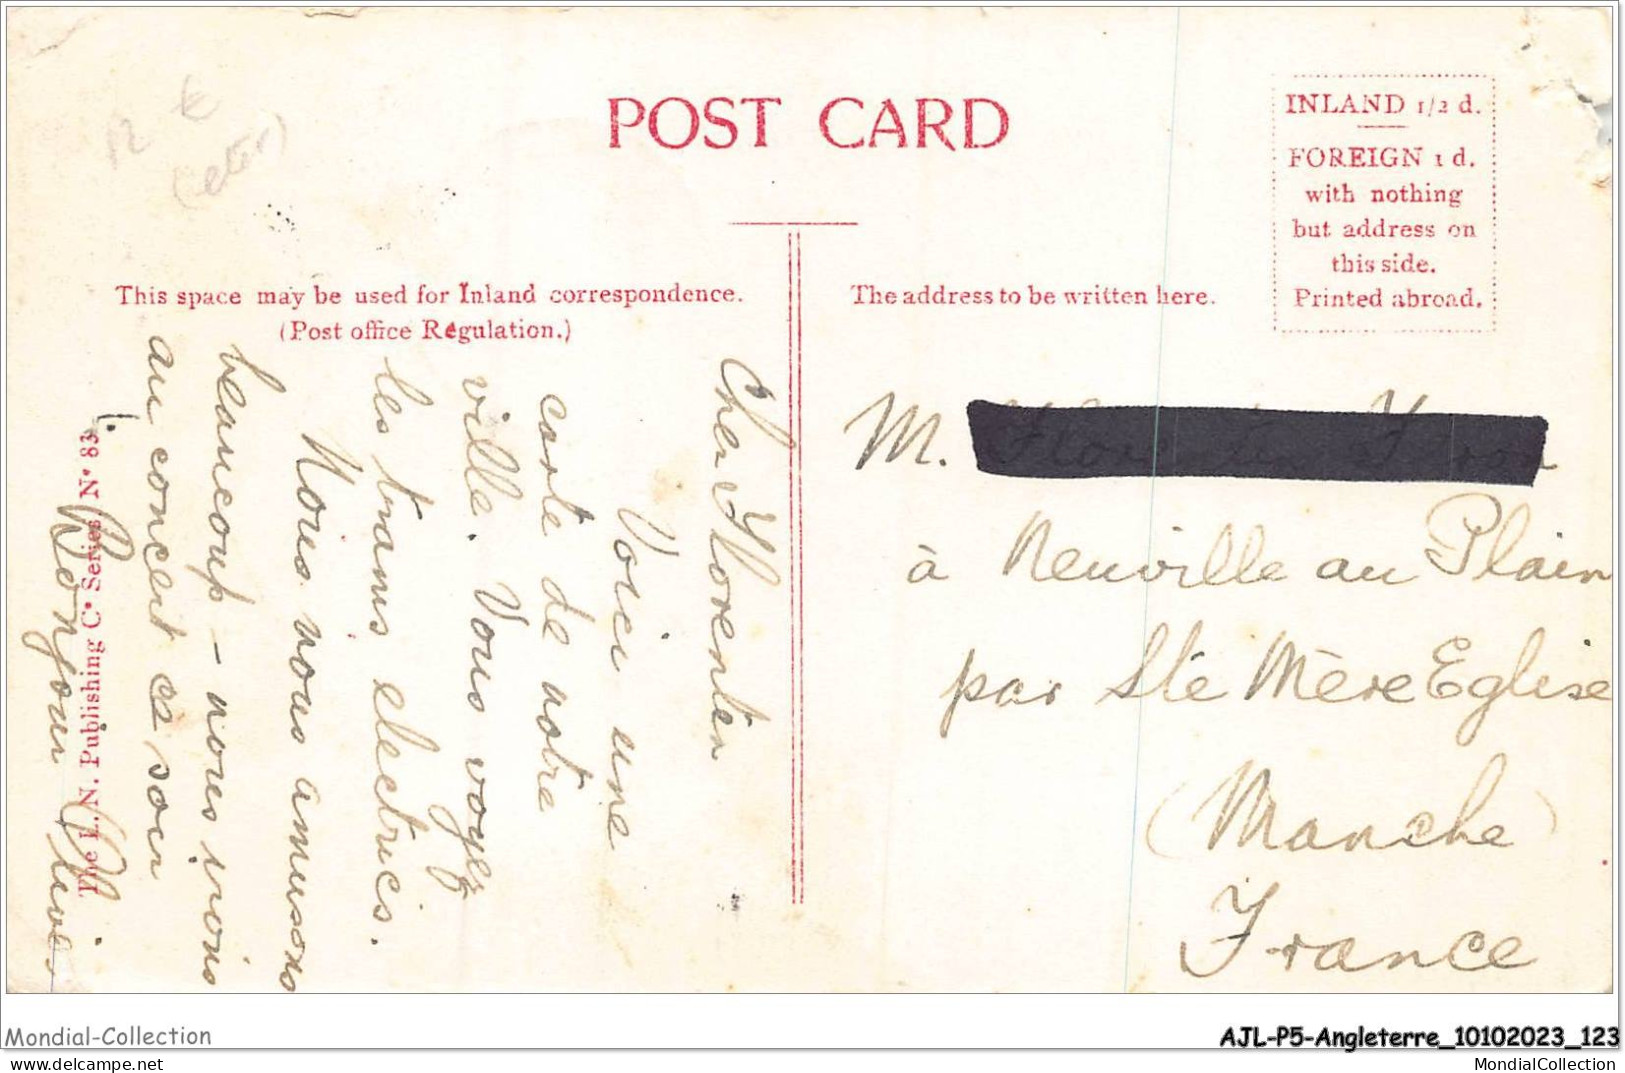 POST CARD
INLAND 1/2 d.
FOREIGN 1 d.
with nothing
but address on
this side.
Printed abroad.
This space may be used for Inland correspondence.
(Post office Regulation.)
The address to be written here.
Cher Florentin
Voici une
carte de notre
ville. Vous voyez
les trams electrics.
Nous nous amusons
beaucoup - nous irons
au concert ce soir
Bonjour
The L.N. Publishing Cº Series Nº 83
M.
à Neuville au Plain
par Ste Mère Eglise
(Manche)
France
Mondial-Collection
AJL-P5-Angleterre_10102023_123
delcampe.net
MondialCollection